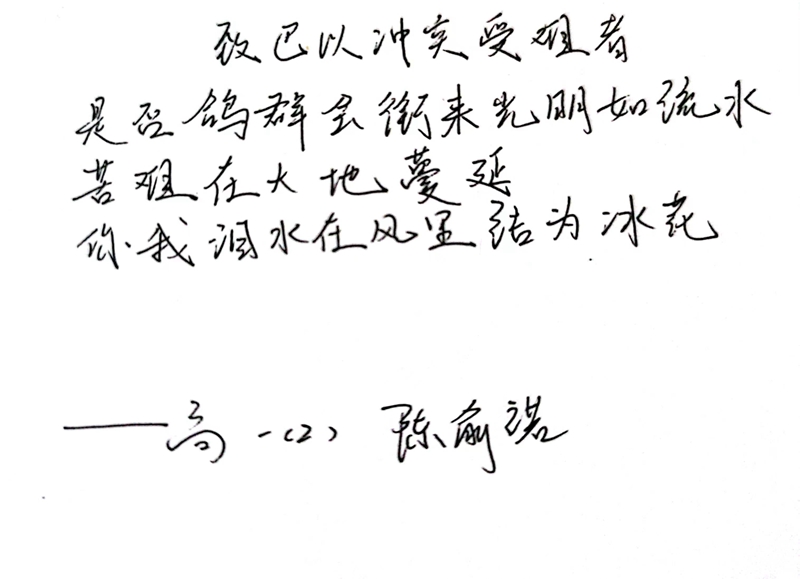 致巴以冲突受难者
是否鸽群会衔来光明如流水
苦难在大地蔓延
你我泪水在风里结为冰花
——高一(2) 陈俞诺